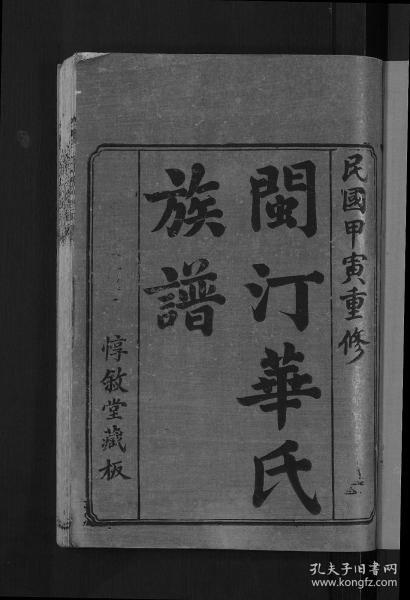 民國甲寅重修
閩汀華氏
族譜
惇敘堂藏板
孔夫子旧书网
www.kongfz.com